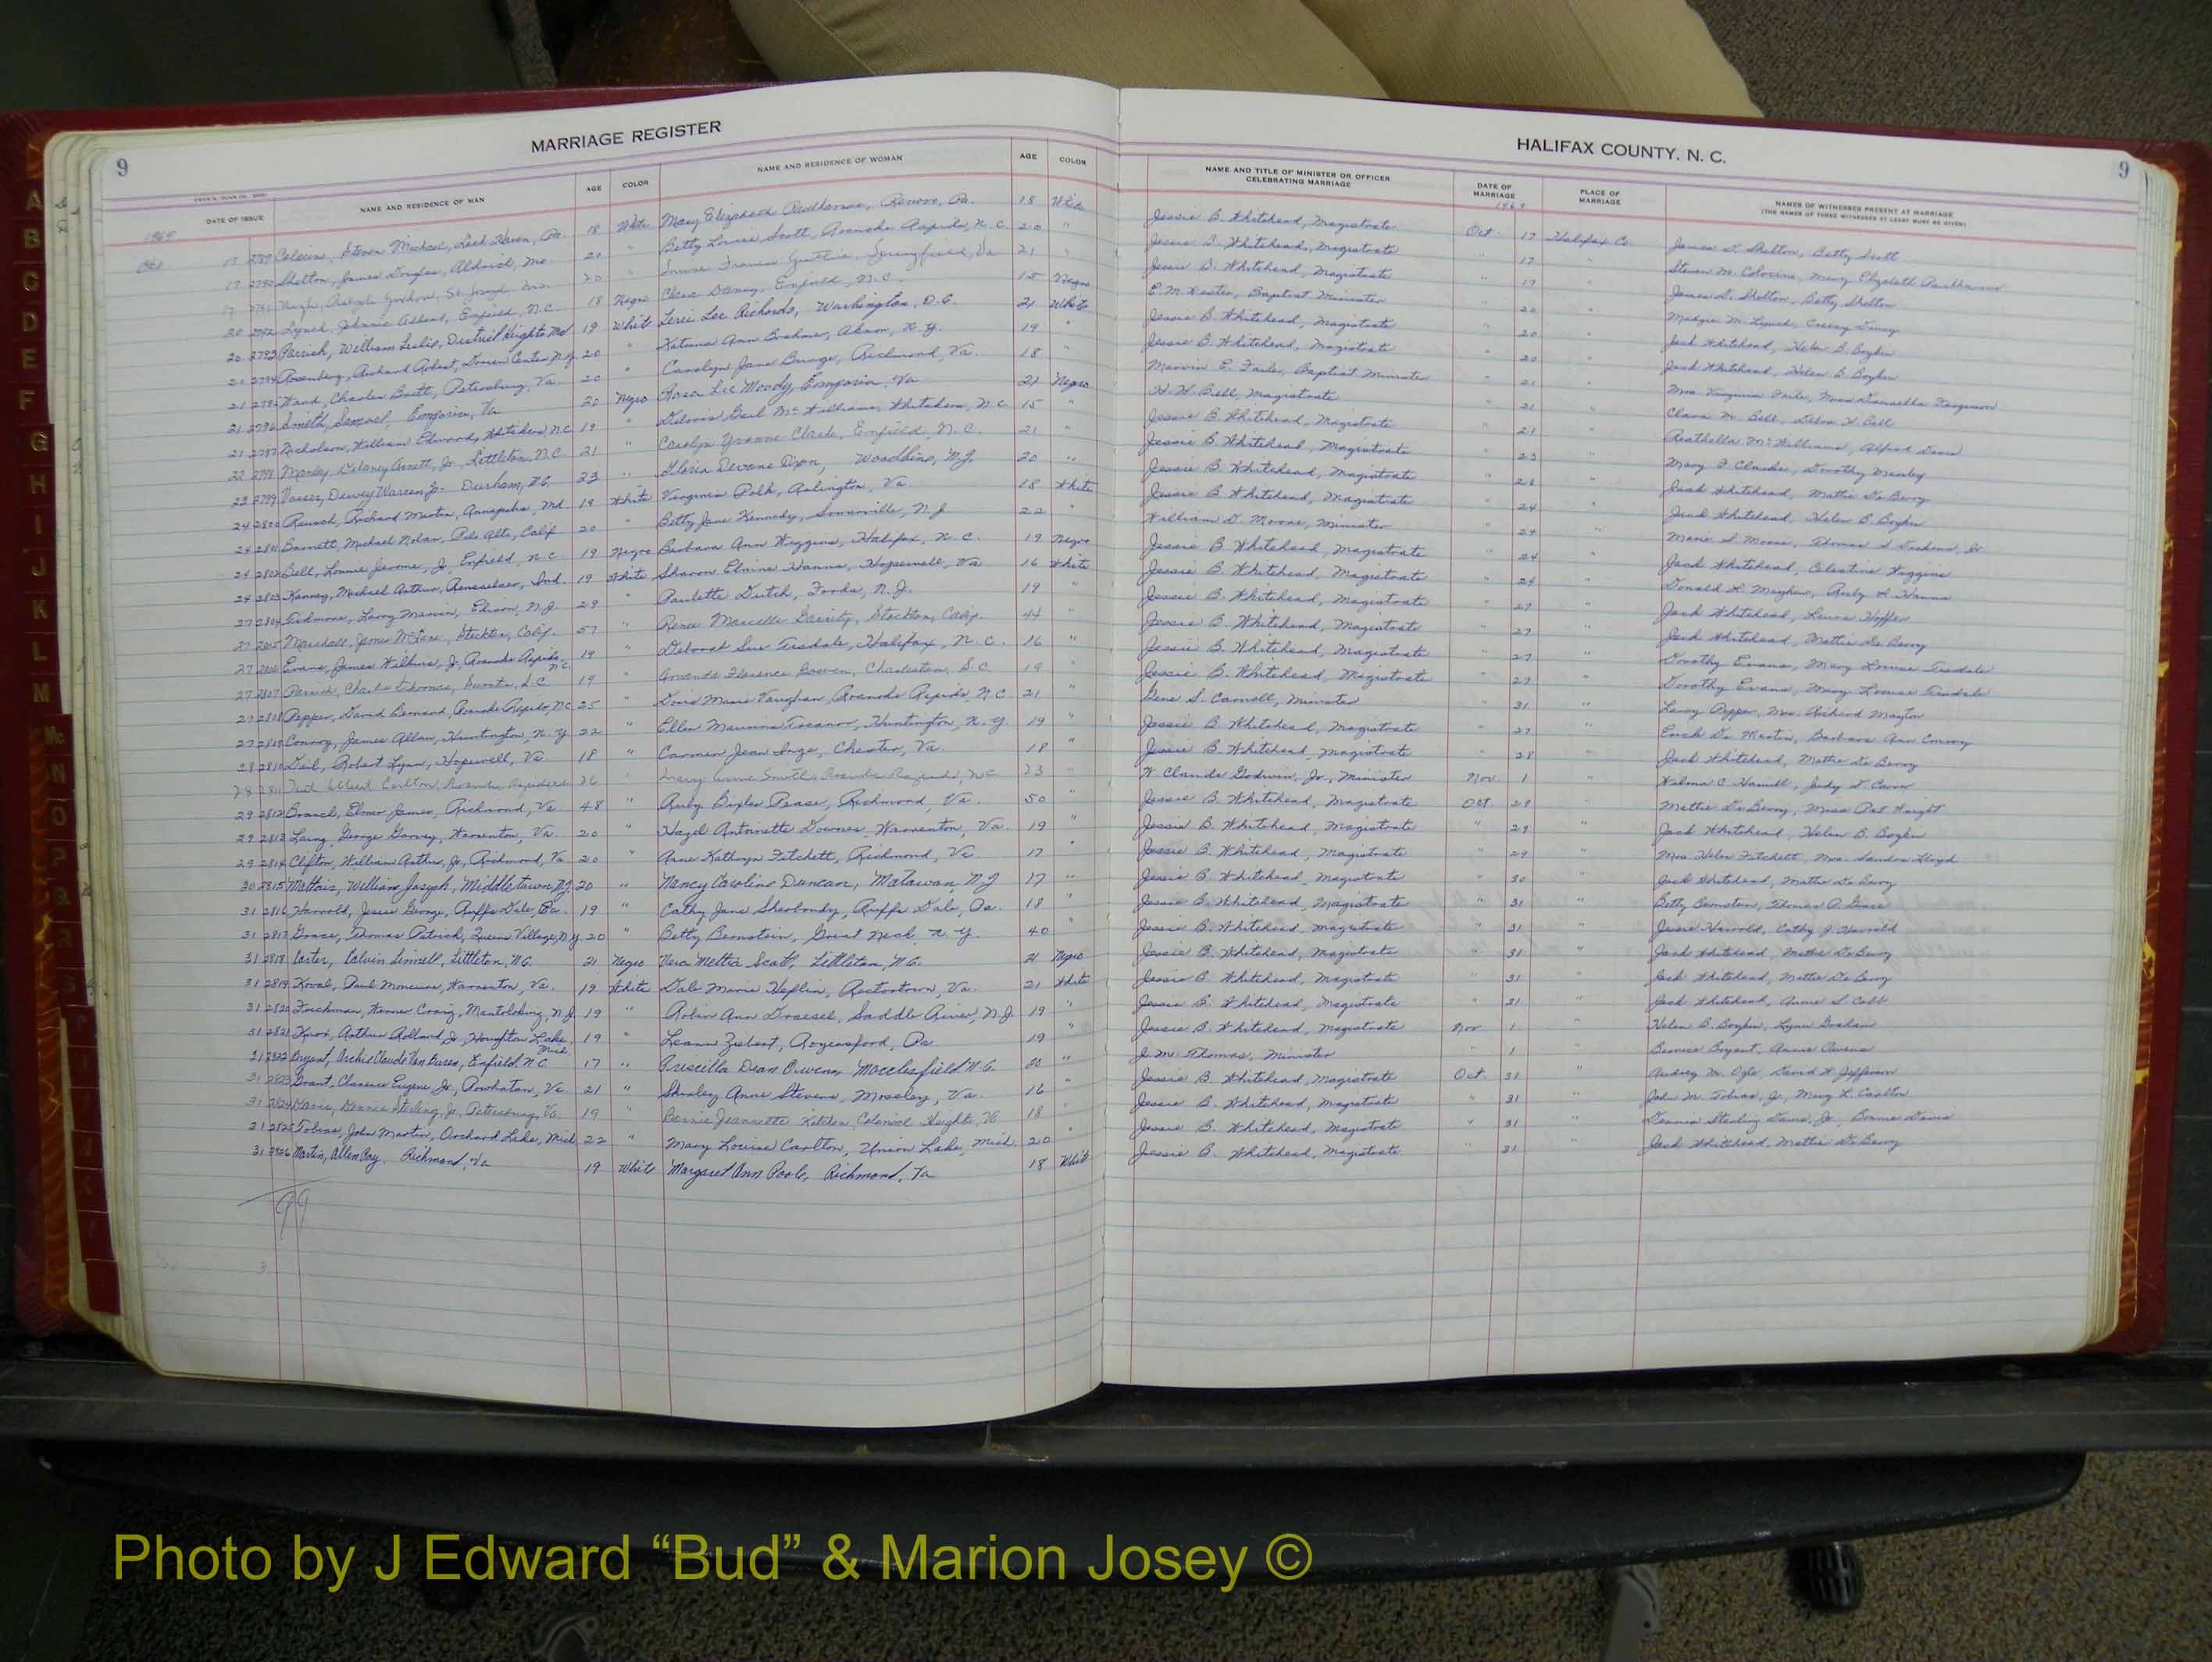 9
MARRIAGE REGISTER
DATE OF ISSUE NAME AND RESIDENCE OF MAN AGE COLOR NAME AND RESIDENCE OF WOMAN AGE COLOR
1969
Oct 17 2789 Steven Michael, Lock Haven, Pa. 18 White Mary Elizabeth Renovo, Pa. 18 White
17 2790 Shelton, James Douglas, Aldrich, Mo. 20 " Betty Louise Scott, Roanoke Rapids, N.C. 20 "
17 2791 Ralph Gordon, St. Joseph, 20 " Springfield, Va 21 "
20 2792 Lynch, Johnnie Enfield, N.C. 18 Negro Clara Enfield, N.C. 15 Negro
20 2793 Parrish, William Leslie, District Heights Md 19 White Lee Richards, Washington, D.C. 21 White
2794 Rosenberg, Richard Robert, N.Y. 20 " Katrina Ann Akron, N.Y. 19 "
21 2795 Ward, Charles Petersburg, Va. 20 " Carolyn Jane Richmond, Va. 18 "
21 2796 Smith, Samuel, Emporia, Va 20 Negro Rosa Lee Moody, Emporia, Va 21 Negro
21 2797 Nicholson, William Edward, Whitakers, N.C. 19 " Gail McWilliams, Whitakers, N.C. 15 "
22 2798 Manley, Delaney Jr, Littleton, N.C. 21 " Carolyn Yvonne Clark, Enfield, N.C. 21 "
23 2799 Dewey Warren Jr. Durham, N.C. 23 " Gloria Devone Dixon, Woodbine, N.J. 20 "
24 2800 Richard Martin, Annapolis, Md 19 White Virginia Polk, Arlington, Va 18 White
24 2801 Barnett, Michael Nolan, Palo Alto, Calif 20 " Betty Jane Kennedy, Somerville, N.J. 22 "
24 2802 Bell, Lonnie Jerome, Jr, Enfield, N.C. 19 Negro Barbara Ann Wiggins, Halifax, N.C. 19 Negro
24 2803 Michael Arthur, Rensselaer, Ind. 19 White Sharon Elaine Hanna, Hopewell, Va 16 White
27 2804 Larry Marvin, Edison, N.J. 29 " Paulette Dutch, Fords, N.J. 19 "
27 2805 Marshall, James Stockton, Calif. 57 " Renee Stockton, Calif. 44 "
27 2806 Evans, James Wilkins, Jr, Roanoke Rapids, N.C. 19 " Deborah Sue Tisdale, Halifax, N.C. 16 "
27 2807 Parrish, Charles Thomas, S.C. 19 " Florence Bowen, Charleston, S.C. 19 "
27 2808 Pepper, David Bernard, Roanoke Rapids, N.C. 25 " Doris Marie Vaughan, Roanoke Rapids, N.C. 21 "
27 2809 Conroy, James Allan, Huntington, N.Y. 22 " Ellen Huntington, N.Y. 19 "
28 2810 Robert Lynn, Hopewell, Va 18 " Carmen Jean Inge, Chester, Va. 18 "
28 2811 Carlton, Roanoke Rapids 26 " Smith, Roanoke Rapids, N.C. 23 "
29 2812 Branch, Elmer James, Richmond, Va 48 " Ruby Bixler Pease, Richmond, Va. 50 "
29 2813 George Garvey, Warrenton, Va. 20 " Hazel Antoinette Downes, Warrenton, Va. 19 "
29 2814 Clifton, William Arthur, Jr, Richmond, Va 20 " Anne Kathryn Fitchett, Richmond, Va. 17 "
30 2815 William Joseph, Middletown, N.J. 20 " Nancy Caroline Duncan, Matawan, N.J. 17 "
31 2816 Harrold, Jessie George, Ruffs Dale, Pa. 19 " Cathy Jane Sherbondy, Ruffs Dale, Pa. 18 "
31 2817 Grace, Thomas Patrick, Queens Village, N.Y. 20 " Betty Bernstein, Great Neck, N.Y. 40 "
31 2818 Carter, Calvin Linnell, Littleton, N.C. 21 Negro Vera Mettia Scott, Littleton, N.C. 21 Negro
31 2819 Koval, Paul Moncure, Warrenton, Va. 19 White Dale Marie Heflin, Rectortown, Va. 21 White
31 2820 Craig, Mantoloking, N.J. 19 " Robin Ann Saddle River, N.J. 19 "
31 2821 Knox, Arthur Rolland, Jr, Houghton Lake, Mich. 19 " Leann Zebert, Royersford, Pa. 19 "
31 2822 Bryant, Archie Claude Van Buren, Enfield, N.C. 17 " Priscilla Dean Owens, Macclesfield N.C. 20 "
31 2823 Grant, Clarence Eugene, Jr, Powhatan, Va. 21 " Shirley Anne Stevens, Moseley, Va. 16 "
31 2824 Davis, Dennis Sterling, Jr, Petersburg, Va. 19 " Jeannette Colonial Heights, Va 18 "
31 2825 Tobias, John Martin, Orchard Lake, Mich. 22 " Mary Louise Carlton, Union Lake, Mich. 20 "
31 2826 Martin, Allen Ray, Richmond, Va 19 White Margaret Ann Poole, Richmond, Va 18 White
HALIFAX COUNTY, N. C.
9
NAME AND TITLE OF MINISTER OR OFFICER CELEBRATING MARRIAGE DATE OF MARRIAGE PLACE OF MARRIAGE NAMES OF WITNESSES PRESENT AT MARRIAGE
(THE NAMES OF THREE WITNESSES AT LEAST MUST BE GIVEN)
1969
Jessie B. Whitehead, Magistrate Oct. 17 Halifax Co. James D. Shelton, Betty Scott
Jessie B. Whitehead, Magistrate " 17 " Steven M. Mary Elizabeth
Jessie B. Whitehead, Magistrate " 17 " James D. Shelton, Betty Shelton
E. M. Baptist Minister " 20 " Madgie M. Lynch,
Jessie B. Whitehead, Magistrate " 20 " Jack Whitehead, Helen B. Boykin
Jessie B. Whitehead, Magistrate " 20 " Jack Whitehead, Helen B. Boykin
Marvin E. Faile, Baptist Minister " 21 " Mrs. Virginia Faile, Ferguson
H. H. Bell, Magistrate " 21 " Clara M. Bell, H. Bell
Jessie B. Whitehead, Magistrate " 21 " McWilliams, Alfred
Jessie B. Whitehead, Magistrate " 23 " Mary F. Clarke, Dorothy Manley
Jessie B. Whitehead, Magistrate " " Jack Whitehead, Mattie DeBerry
Jessie B. Whitehead, Magistrate " 24 " Jack Whitehead, Helen B. Boykin
William D. Moore, Minister " 24 " Marie S. Moore, Thomas
Jessie B. Whitehead, Magistrate " 24 " Jack Whitehead, Celestine Wiggins
Jessie B. Whitehead, Magistrate " 24 " Donald L. Ruby L. Hanna
Jessie B. Whitehead, Magistrate " 27 " Jack Whitehead, Laura
Jessie B. Whitehead, Magistrate " 27 " Jack Whitehead, Mattie DeBerry
Jessie B. Whitehead, Magistrate " 27 " Dorothy Evans, Mary Louise Tisdale
Jessie B. Whitehead, Magistrate " 27 " Dorothy Evans, Mary Louise Tisdale
Gene S. Minister " 31 " Larry Pepper, Mrs. Richard
Jessie B. Whitehead, Magistrate " 27 " Barbara Ann Conroy
Jessie B. Whitehead, Magistrate " 28 " Jack Whitehead, Mattie DeBerry
W. Claude Godwin, Jr., Minister Nov. 1 " Wilma C. Judy
Jessie B. Whitehead, Magistrate Oct. 29 " Mattie DeBerry, Miss Pat
Jessie B. Whitehead, Magistrate " 29 " Jack Whitehead, Helen B. Boykin
Jessie B. Whitehead, Magistrate " 29 " Mrs. Helen Fitchett, Mrs. Sandra Lloyd
Jessie B. Whitehead, Magistrate " 30 " Jack Whitehead, Mattie DeBerry
Jessie B. Whitehead, Magistrate " 31 " Betty Bernstein, Thomas P. Grace
Jessie B. Whitehead, Magistrate " 31 " Jessie Harrold, Cathy J. Harrold
Jessie B. Whitehead, Magistrate " 31 " Jack Whitehead, Mattie DeBerry
Jessie B. Whitehead, Magistrate " 31 " Jack Whitehead, Mattie DeBerry
Jessie B. Whitehead, Magistrate " 31 " Jack Whitehead, Annie S. Cobb
Jessie B. Whitehead, Magistrate Nov 1 " Helen B. Boykin, Lynn
J. M. Thomas, Minister " 1 " Bernice Bryant, Annie Owens
Jessie B. Whitehead, Magistrate Oct. 31 " Audrey M. Ogle, David W. Jefferson
Jessie B. Whitehead, Magistrate " 31 " John M. Tobias, Jr, Mary L. Carlton
Jessie B. Whitehead, Magistrate " 31 " Dennis Sterling Davis, Jr, Davis
Jessie B. Whitehead, Magistrate " 31 Jack Whitehead, Mattie DeBerry
A
B
C
D
E
F
G
H
I
J
K
L
M
Mc
N
O
P
Q
R
Photo by J Edward “Bud” & Marion Josey ©